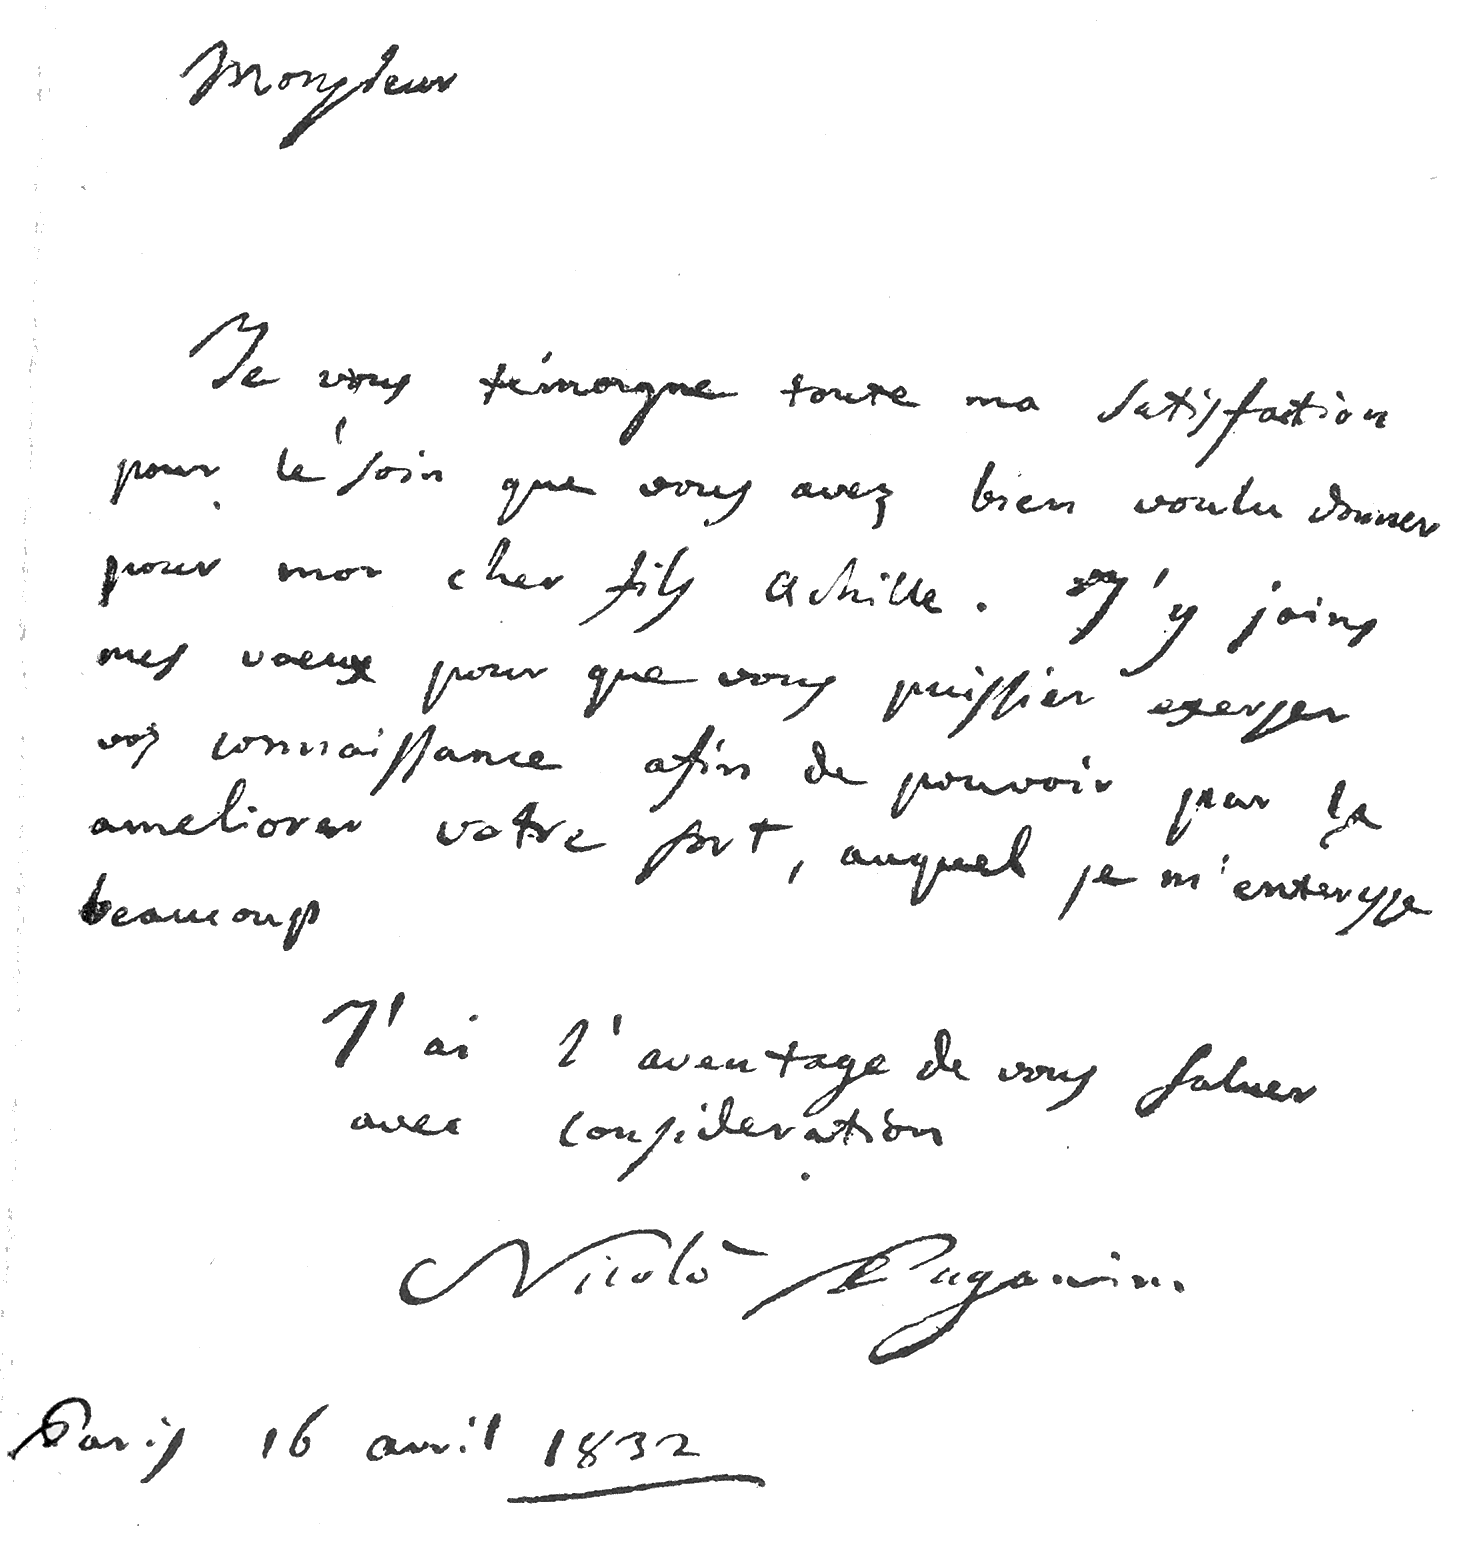 Monsieur
Je vous témoigne toute ma satisfaction
pour le soin que vous avez bien voulu donner
pour mon cher fils Achille. J'y joins
mes voeux pour que vous puissier exerser
vos connaissance afin de pouvoir par la
ameliorer votre sort, auquel je m'enteresse
beaucoup
J'ai l'aventage de vous saluer
avec consideration
Nicolò Paganini.
Paris 16 avril 1832